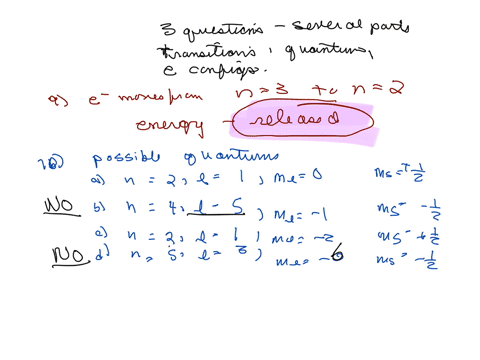 3 questions - several parts
transitions, quantum,
e configs.
a) e⁻ moves from n=3 to n=2
energy - released
1b) possible quantums
a) n = 2, l = 1, ml = 0 ms = +1/2
NO b) n = 4, l - 5, ml = -1 ms - -1/2
c) n = 2, l = 1, ml = -2 ms - +1/2
NO d) n = 5, l = 3, ml = -6 ms = -1/2